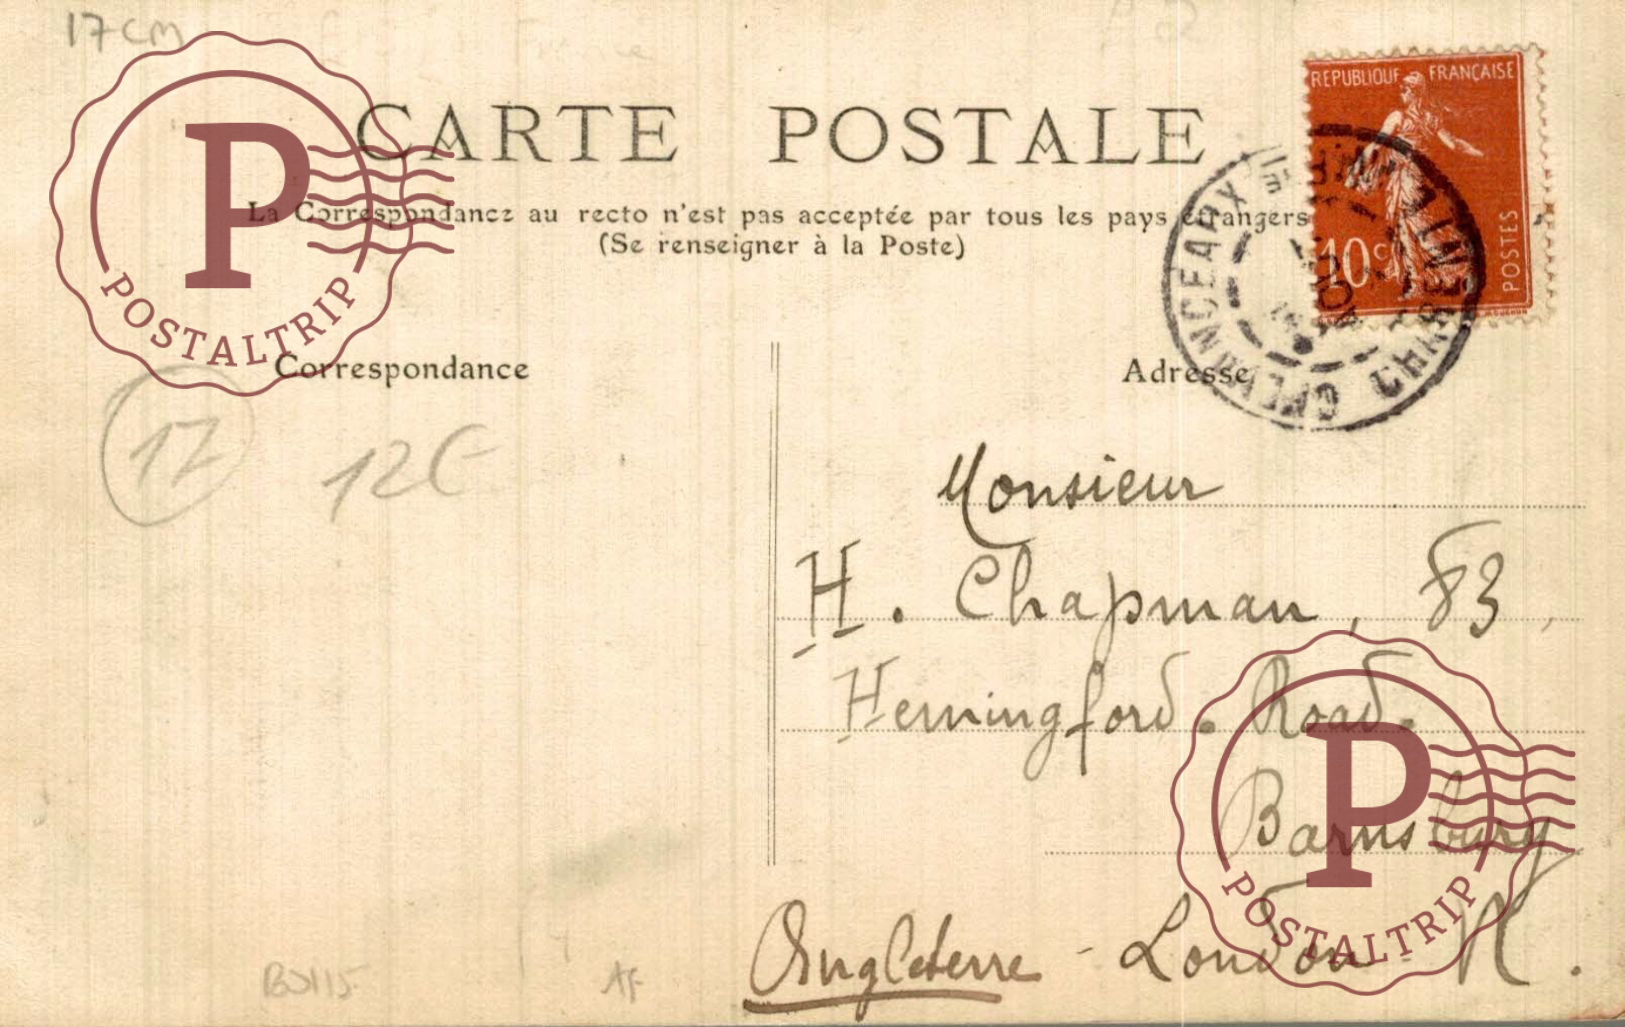 17cm
REPUBLIQUE FRANÇAISE
10c
POSTES
CARTE POSTALE
La Correspondance au recto n'est pas acceptée par tous les pays étrangers
(Se renseigner à la Poste)
P
POSTALTRIP
Correspondance
Adresse
17
12€
Monsieur
H. Chapman, 83,
Hemingford. Road.
Barnsbury
Angleterre - London N.
P
POSTALTRIP
AF